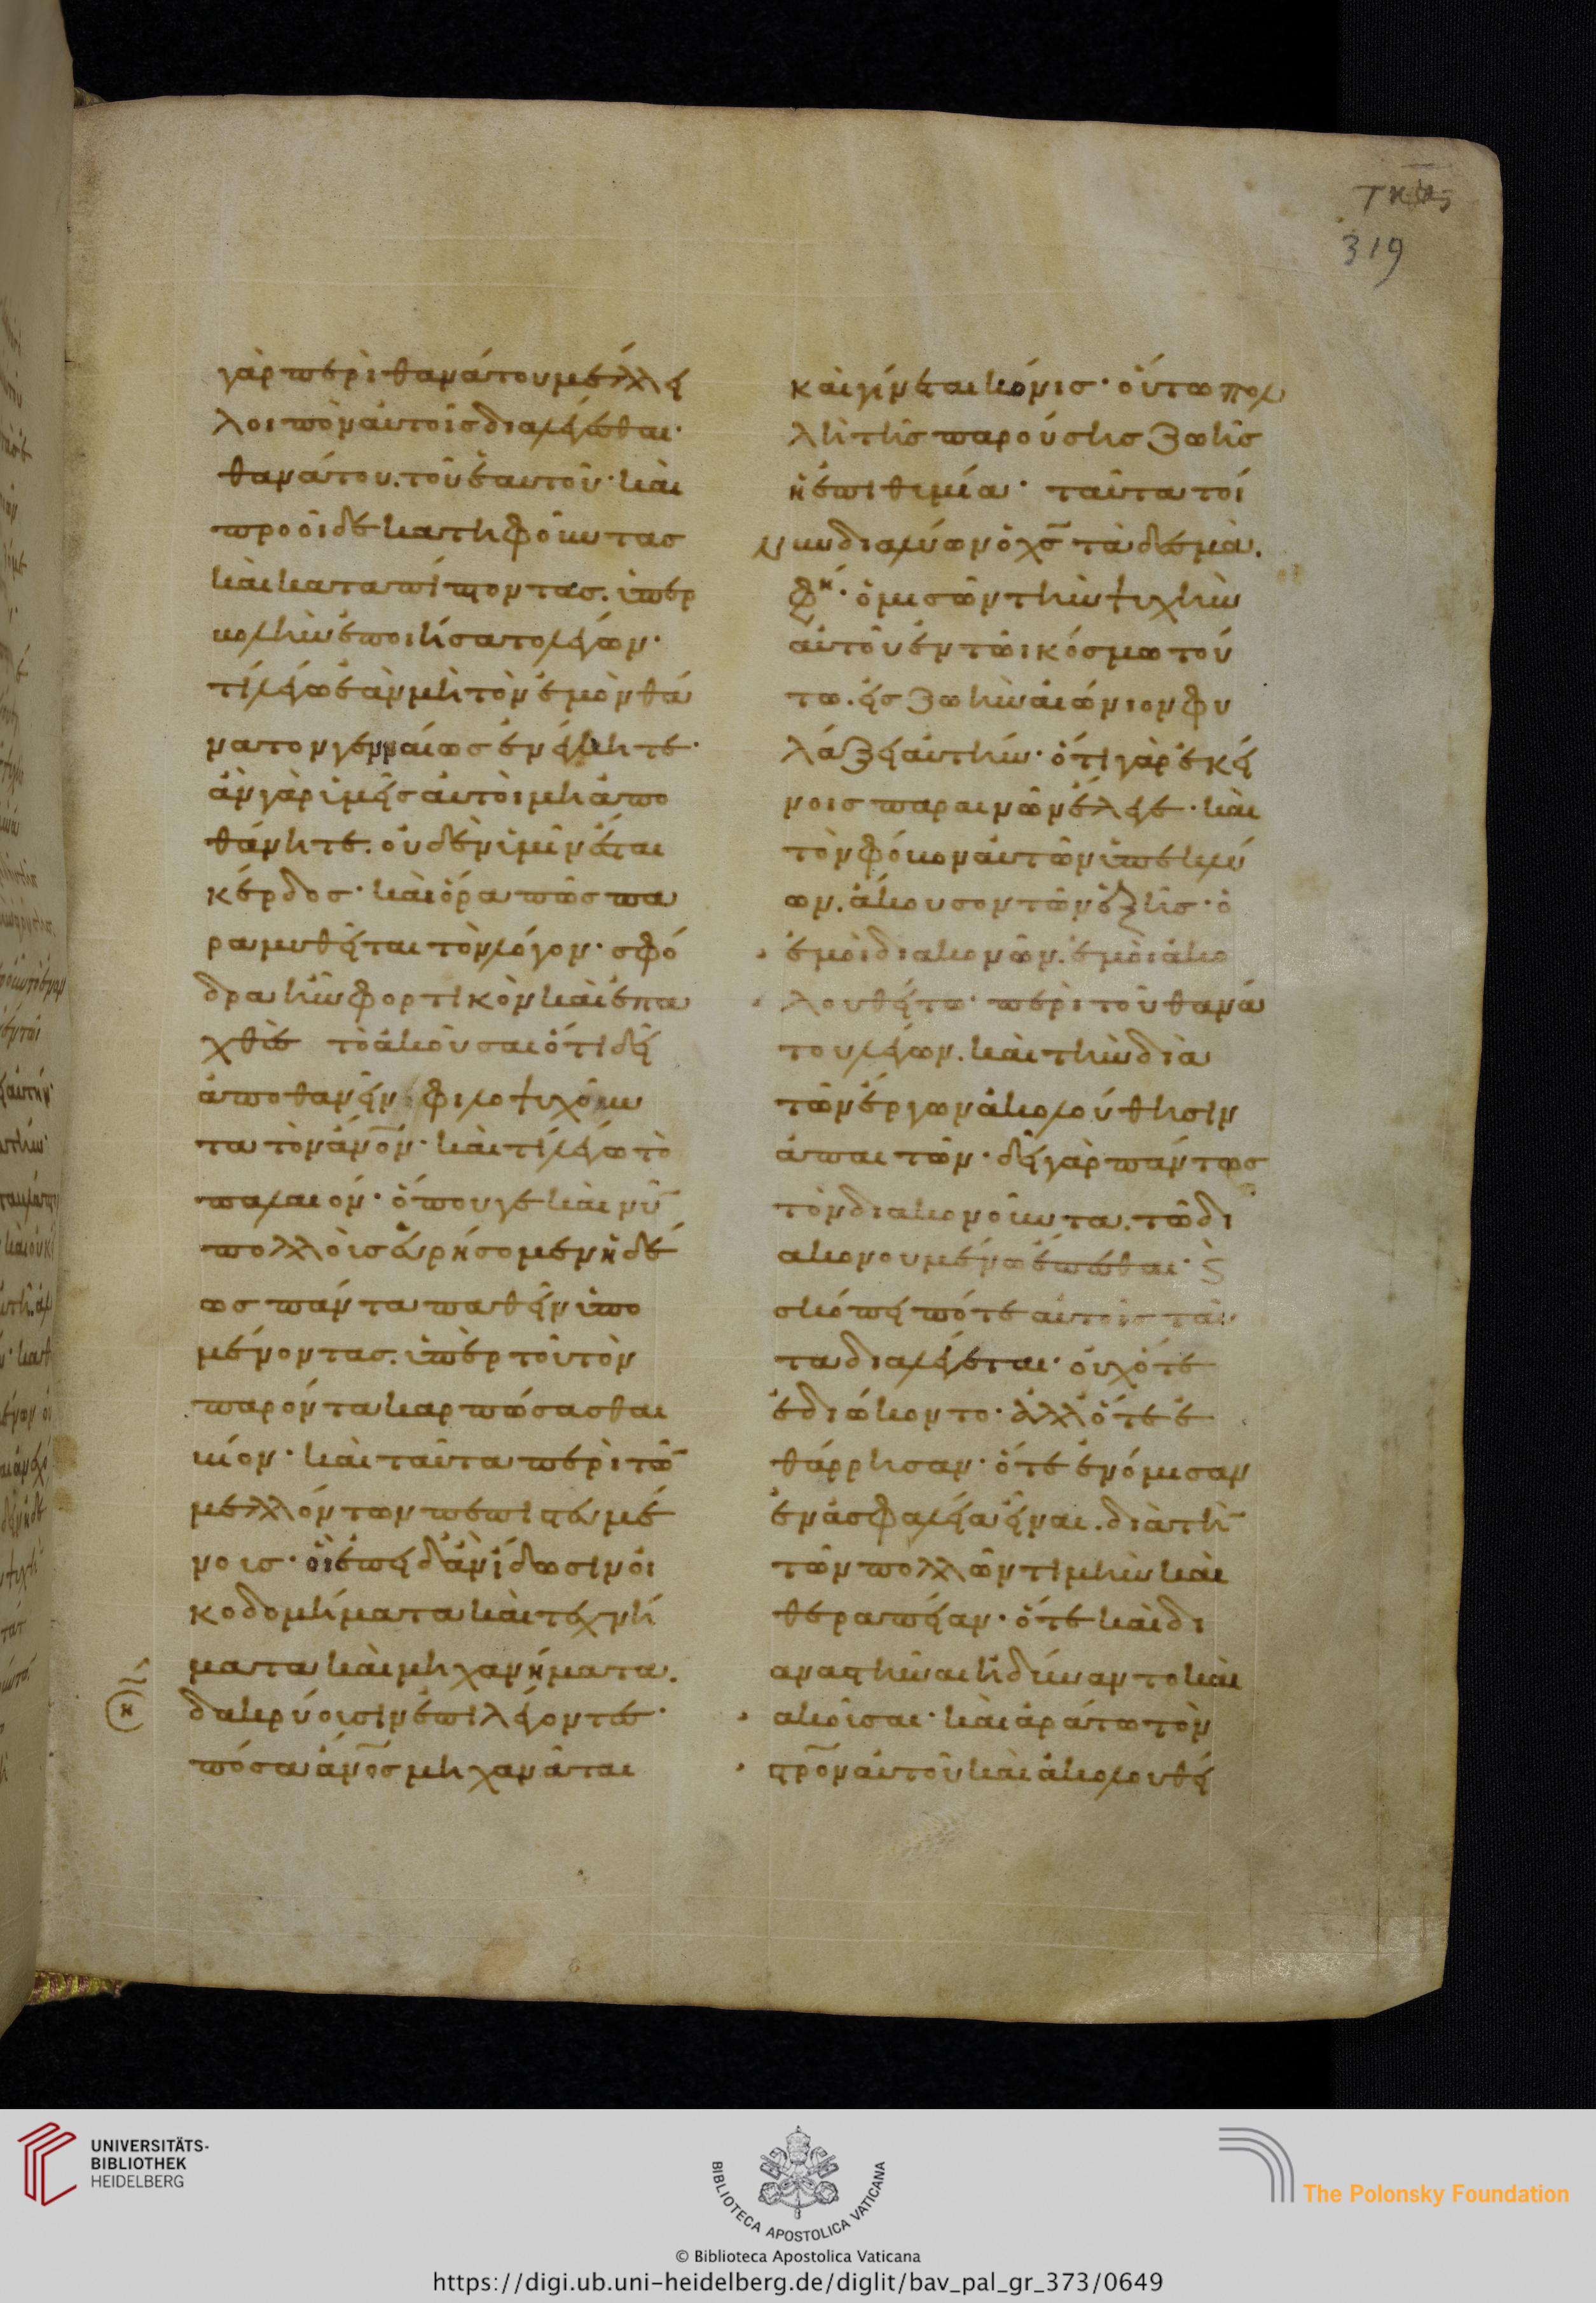 τκθ
319
γὰρ περὶ θανάτου μέλλει
λοιπὸν αὐτοῖς διαλέγεσθαι·
θανάτου. τοῦ ἑαυτοῦ· καὶ
προοῖδε κατηφοῦντας
καὶ καταπίπτοντας. ὑπερ
βολὴν ἐποιήσατο λέγων·
τί λέγω ἐὰν μὴ τὸν ἐμὸν θά
νατον γενναίως ἐνέγκητε·
ἂν γὰρ ὑμεῖς αὐτοὶ μὴ ἀπο
θάνητε. οὐδὲν ὑμῖν ἔσται
κέρδος· καὶ ὅρα πῶς πα
ραμυθεῖται τὸν λόγον· σφό
δρα ἦν φορτικὸν καὶ ἐπα
χθὲς τὸ ἀκοῦσαι ὅτι δεῖ
ἀποθανεῖν φιλοψυχοῦν
τα τὸν ἄνον· καὶ τί λέγω τὸ
παλαιόν· ὅπουγε καὶ νῦ
πολλοὺς εὑρήσομεν ἡδέ
ως πάντα παθεῖν ὑπο
μένοντας. ὑπὲρ τοῦ τὸν
παρόντα καρπώσασθαι
βίον· καὶ ταῦτα περὶ τῶ
μελλόντων πεπεισμέ
νοις· οἳ ἐπειδὰν ἴδωσιν οἰ
κοδομήματα καὶ τεχνή
ματα καὶ μηχανήματα.
δακρύουσιν ἐπιλέγοντες·
πόσα ἄνος μηχανᾶται
καὶ γίνεται κόνις· οὕτω πολ
λὴ τῆς παρούσης ζωῆς
ἡ ἐπιθυμία· ταῦτα τοί
νυν διαλύων ὁ χς τὰ δεσμὰ.
φη· ὁ μισῶν τὴν ψυχὴν
αὐτοῦ ἐν τῶι κόσμω τού
τω. εἰς ζωὴν αἰώνιον φυ
λάξει αὐτήν· ὅτι γὰρ ἐκεί
νοις παραινῶν ἔλεγε· καὶ
τὸν φόβον αὐτῶν ὑπεκλύ
ων. ἄκουσον τῶν ἑξῆς· ὁ
ἐμοὶ διακονῶν. ἐμοὶ ἀκο
λουθείτω· περὶ τοῦ θανά
του λέγων. καὶ τὴν διὰ
τῶν ἔργων ἀκολούθησιν
ἀπαιτῶν· δεῖ γὰρ πάντως
τὸν διακονοῦντα. τῶ δι
ακονουμένω ἕπεσθαι· καὶ
σκόπει πότε αὐτοῖς ταῦ
τα διαλέγεται· οὐχ ὅτε
ἐδιώκοντο· ἀλλ ὅτε ἐ
θάρρησαν· ὅτε ἐνόμισαν
ἐν ἀσφαλεία εἶναι. διὰ τὴ
τῶν πολλῶν τιμὴν καὶ
θεραπείαν· ὅτε καὶ δι
αναστῆναι ἠδύναντο καὶ
ἀκοῦσαι· καὶ ἀράτω τὸν
στρον αὐτοῦ καὶ ἀκολουθεί
UNIVERSITÄTS-
BIBLIOTHEK
HEIDELBERG
BIBLIOTECA APOSTOLICA VATICANA
The Polonsky Foundation
© Biblioteca Apostolica Vaticana
https://digi.ub.uni-heidelberg.de/diglit/bav_pal_gr_373/0649